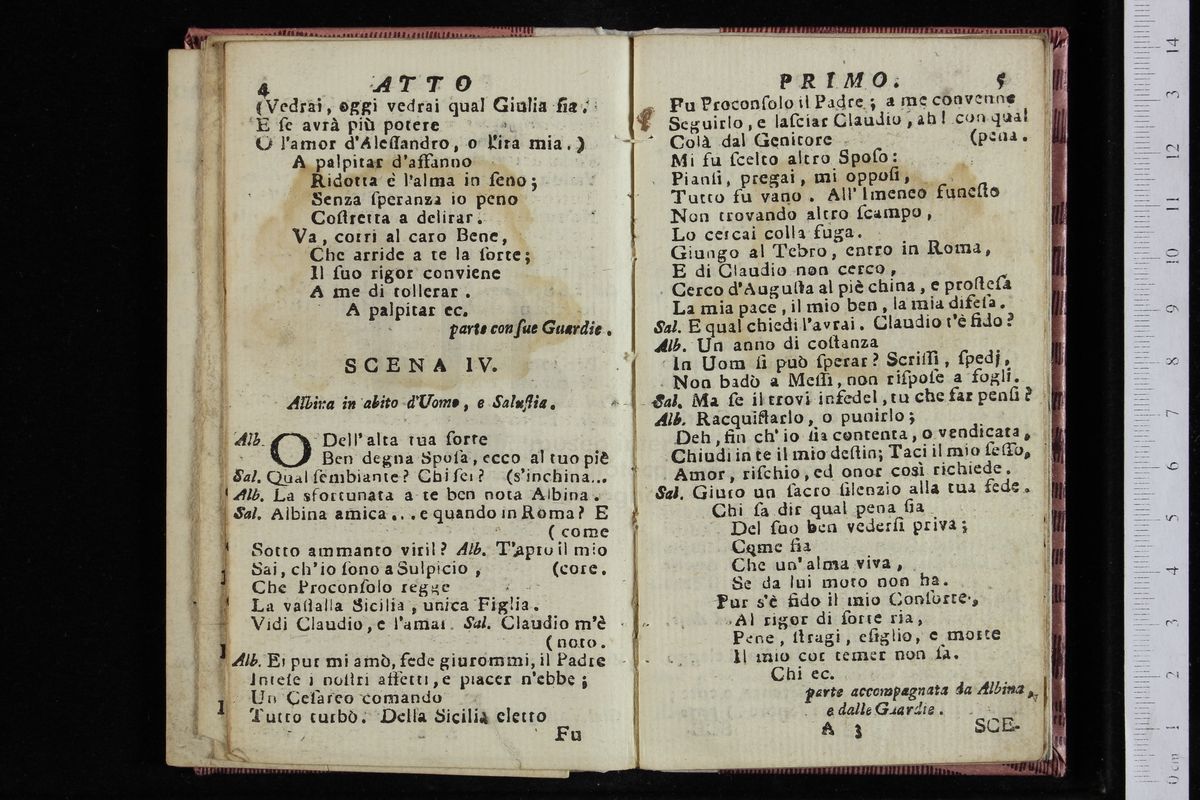 4 ATTO
(Vedrai, oggi vedrai qual Giulia ſia.
E ſe avrà più potere
O l'amor d'Aleſſandro, o l'ira mia.)
A palpitar d'affanno
Ridotta è l'alma in ſeno;
Senza ſperanza io peno
Coſtretta a delirar.
Va, corri al caro Bene,
Che arride a te la ſorte;
Il ſuo rigor conviene
A me di tollerar.
A palpitar ec.
parte con ſue Guardie.
SCENA IV.
Albina in abito d'Uomo, e Saluſtia.
Alb. O Dell'alta tua ſorte
Ben degna Spoſa, ecco al tuo piè
Sal. Qual ſembiante? Chi ſei? (s'inchina...
Alb. La sfortunata a te ben nota Albina.
Sal. Albina amica... e quando in Roma? E
(come
Sotto ammanto viril? Alb. T'apro il mio
Sai, ch'io ſono a Sulpicio, (core.
Che Proconſolo regge
La vaſſalla Sicilia, unica Figlia.
Vidi Claudio, e l'amai. Sal. Claudio m'è
(noto.
Alb. Ei pur mi amò, fede giurommi, il Padre
Inteſe i noſtri affetti, e piacer n'ebbe;
Un Ceſareo comando
Tutto turbò. Della Sicilia eletto
Fu
PRIMO. 5
Fu Proconſolo il Padre; a me convenne
Seguirlo, e laſciar Claudio, ah! con qual
Colà dal Genitore (pena.
Mi fu ſcelto altro Spoſo:
Pianſi, pregai, mi oppoſi,
Tutto fu vano. All'Imeneo funeſto
Non trovando altro ſcampo,
Lo cercai colla fuga.
Giungo al Tebro, entro in Roma,
E di Claudio non cerco,
Cerco d'Auguſta al piè china, e proſteſa
La mia pace, il mio ben, la mia difeſa.
Sal. E qual chiedi l'avrai. Claudio t'è fido?
Alb. Un anno di coſtanza
In Uom ſi può ſperar? Scriſſi, ſpedj,
Non badò a Meſſi, non riſpoſe a fogli.
Sal. Ma ſe il trovi infedel, tu che far penſi?
Alb. Racquiſtarlo, o punirlo;
Deh, fin ch'io ſia contenta, o vendicata,
Chiudi in te il mio deſtin; Taci il mio ſeſſo,
Amor, riſchio, ed onor così richiede.
Sal. Giuro un ſacro ſilenzio alla tua fede.
Chi ſa dir qual pena ſia
Del ſuo ben vederſi priva;
Come ſia
Che un'alma viva,
Se da lui moto non ha.
Pur s'è fido il mio Conſorte,
Al rigor di ſorte ria,
Pene, ſtragi, eſiglio, e morte
Il mio cor temer non ſa.
Chi ec.
parte accompagnata da Albina,
e dalle Guardie.
A 3 SCE-
0 cm 1 2 3 4 5 6 7 8 9 10 11 12 13 14